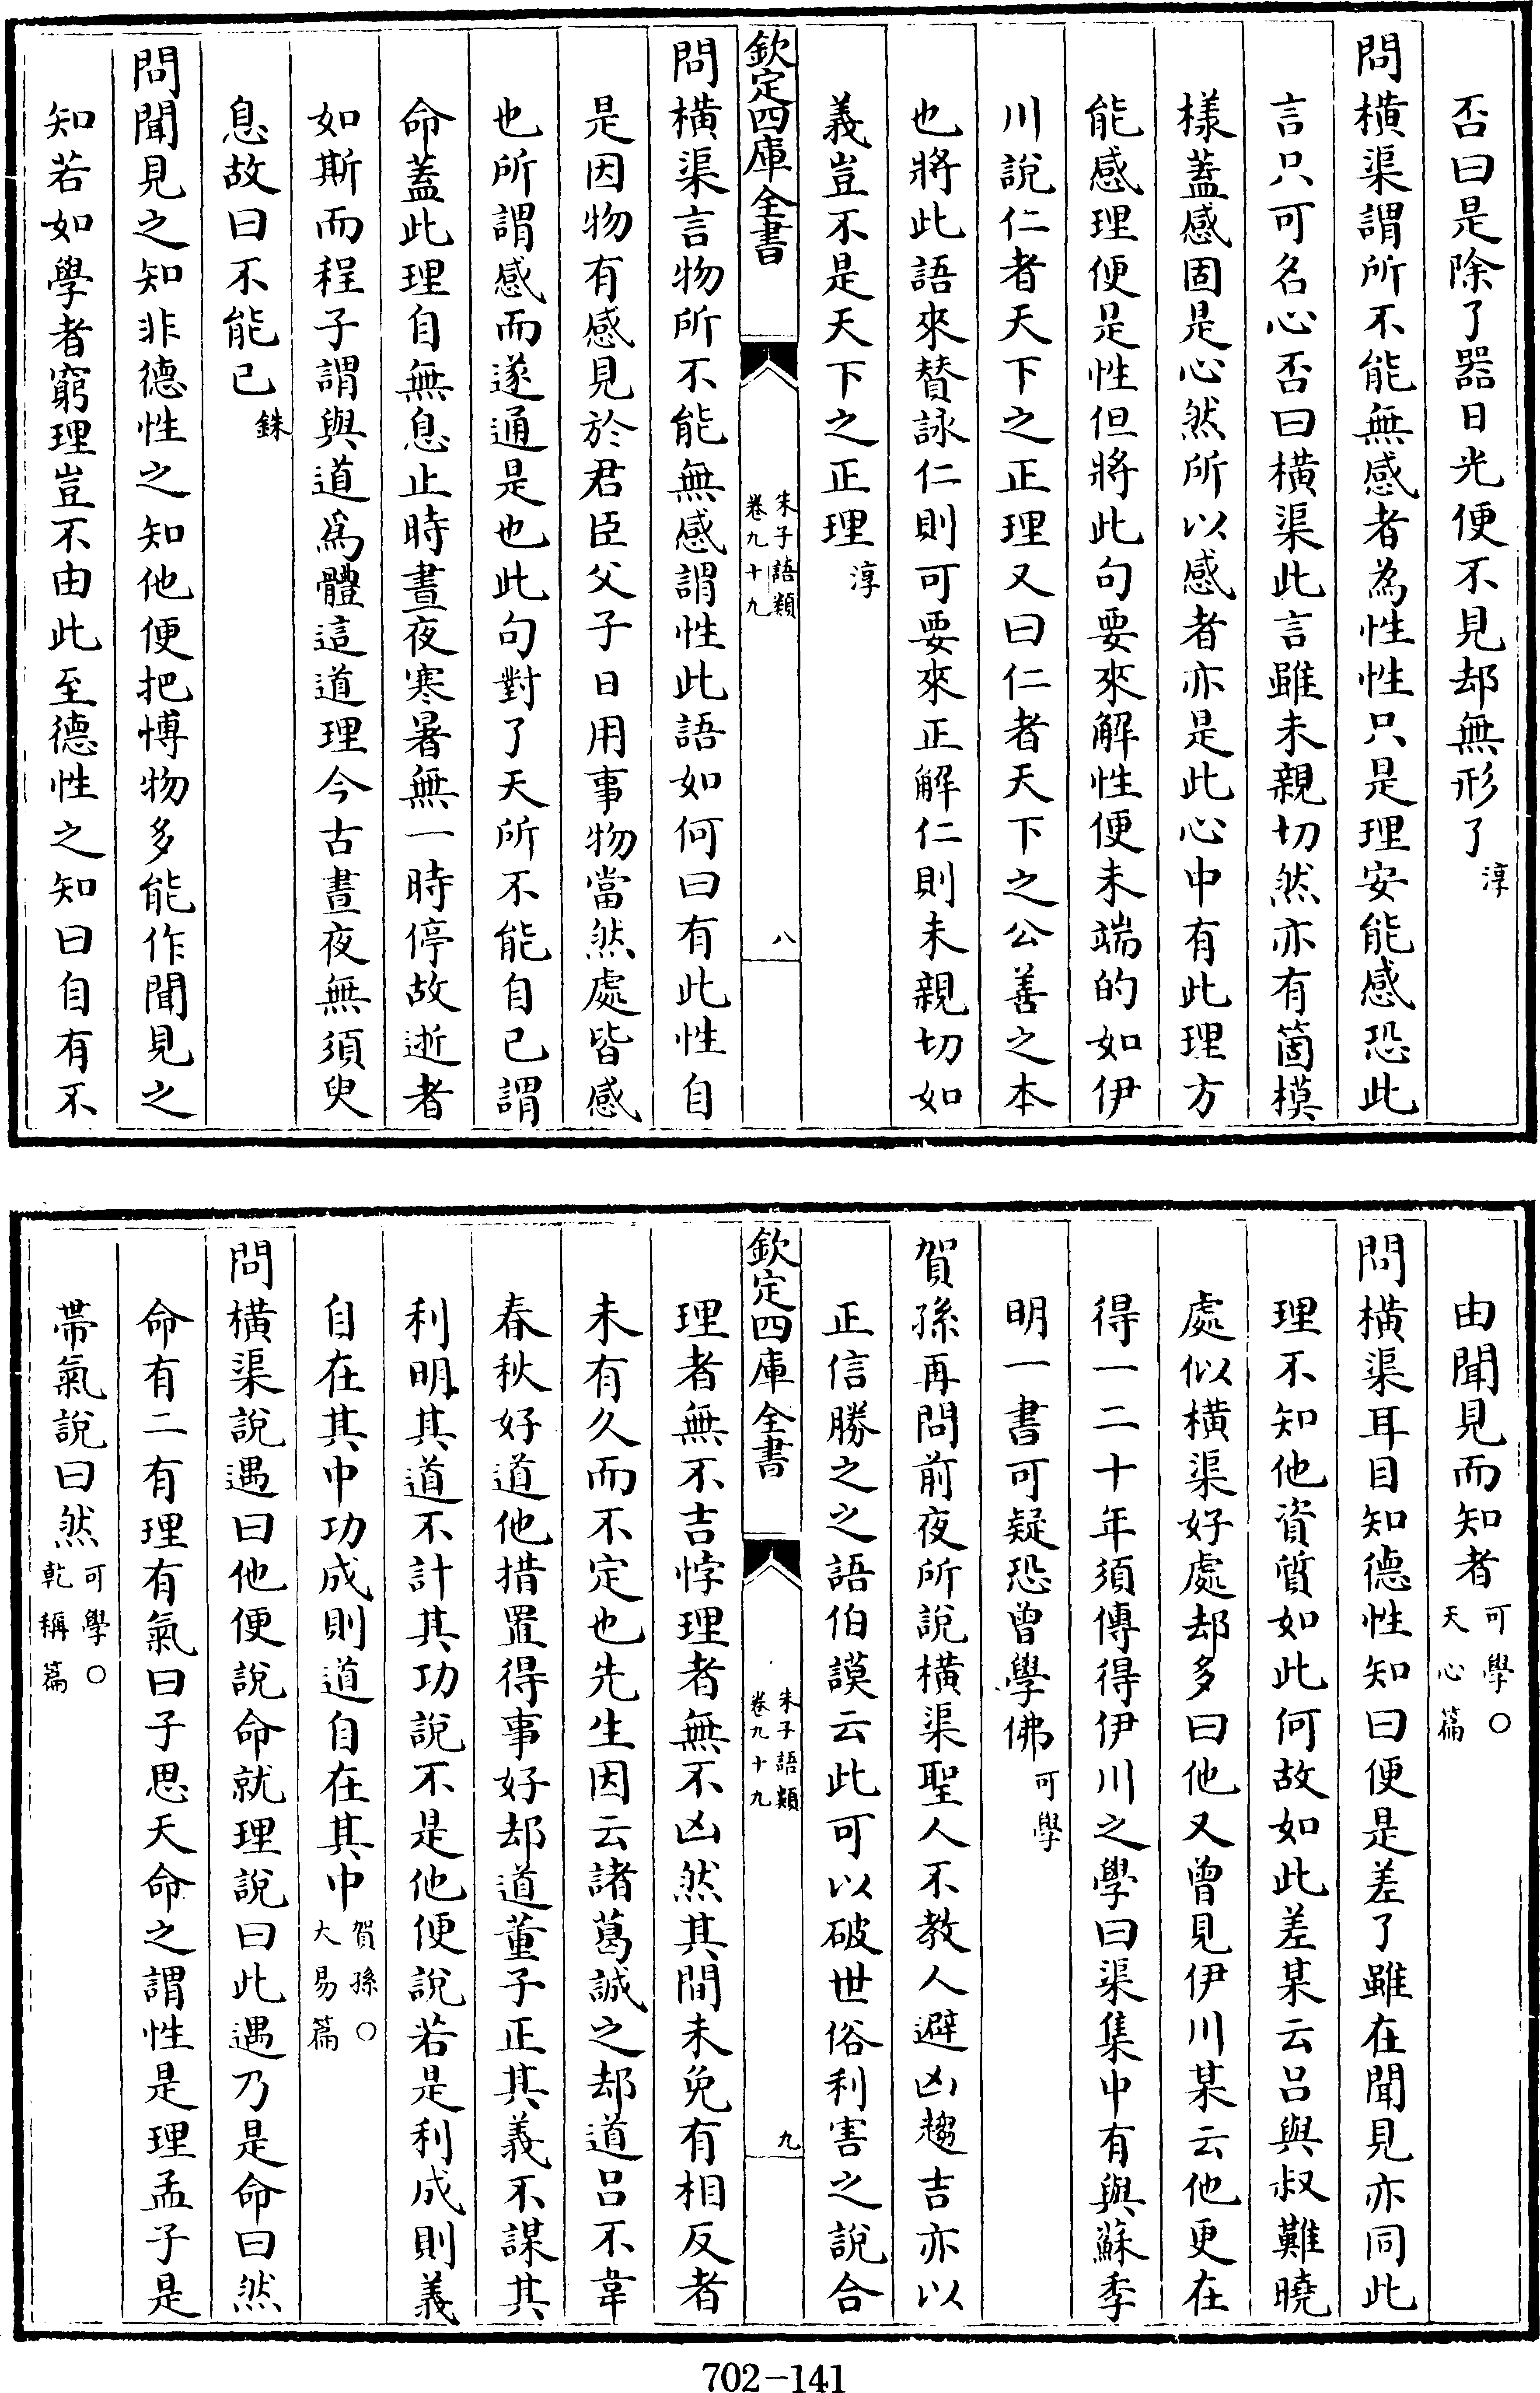 否曰是除了器日光便不見却無形了淳
問橫渠謂所不能無感者為性性只是理安能感恐此
言只可名心否曰橫渠此言雖未親切然亦有箇模
樣蓋感固是心然所以感者亦是此心中有此理方
能感理便是性但將此句要來解性便未端的如伊
川說仁者天下之正理又曰仁者天下之公善之本
也將此語來賛詠仁則可要來正解仁則未親切如
義豈不是天下之正理淳
欽定四庫全書
朱子語類
卷九十九
八
問橫渠言物所不能無感謂性此語如何曰有此性自
是因物有感見於君臣父子日用事物當然處皆感
也所謂感而遂通是也此句對了天所不能自已謂
命蓋此理自無息止時晝夜寒暑無一時停故逝者
如斯而程子謂與道爲體這道理今古晝夜無須臾
息故曰不能已銖
問聞見之知非德性之知他便把博物多能作聞見之
知若如學者窮理豈不由此至德性之知曰自有不
由聞見而知者可學○
天心篇
問橫渠耳目知德性知曰便是差了雖在聞見亦同此
理不知他資質如此何故如此差某云呂與叔難曉
處似橫渠好處却多曰他又曾見伊川某云他更在
得一二十年須傳得伊川之學曰渠集中有與蘇季
明一書可疑恐曾學佛可學
賀孫再問前夜所說橫渠聖人不教人避凶趨吉亦以
正信勝之之語伯謨云此可以破世俗利害之說合
欽定四庫全書
朱子語類
卷九十九
九
理者無不吉悖理者無不凶然其間未免有相反者
未有久而不定也先生因云諸葛誠之却道呂不韋
春秋好道他措置得事好却道董子正其義不謀其
利明其道不計其功說不是他便說若是利成則義
自在其中功成則道自在其中賀孫○
大易篇
問橫渠說遇曰他便說命就理說曰此遇乃是命曰然
命有二有理有氣曰子思天命之謂性是理孟子是
帶氣說曰然可學○
乾稱篇
702-141